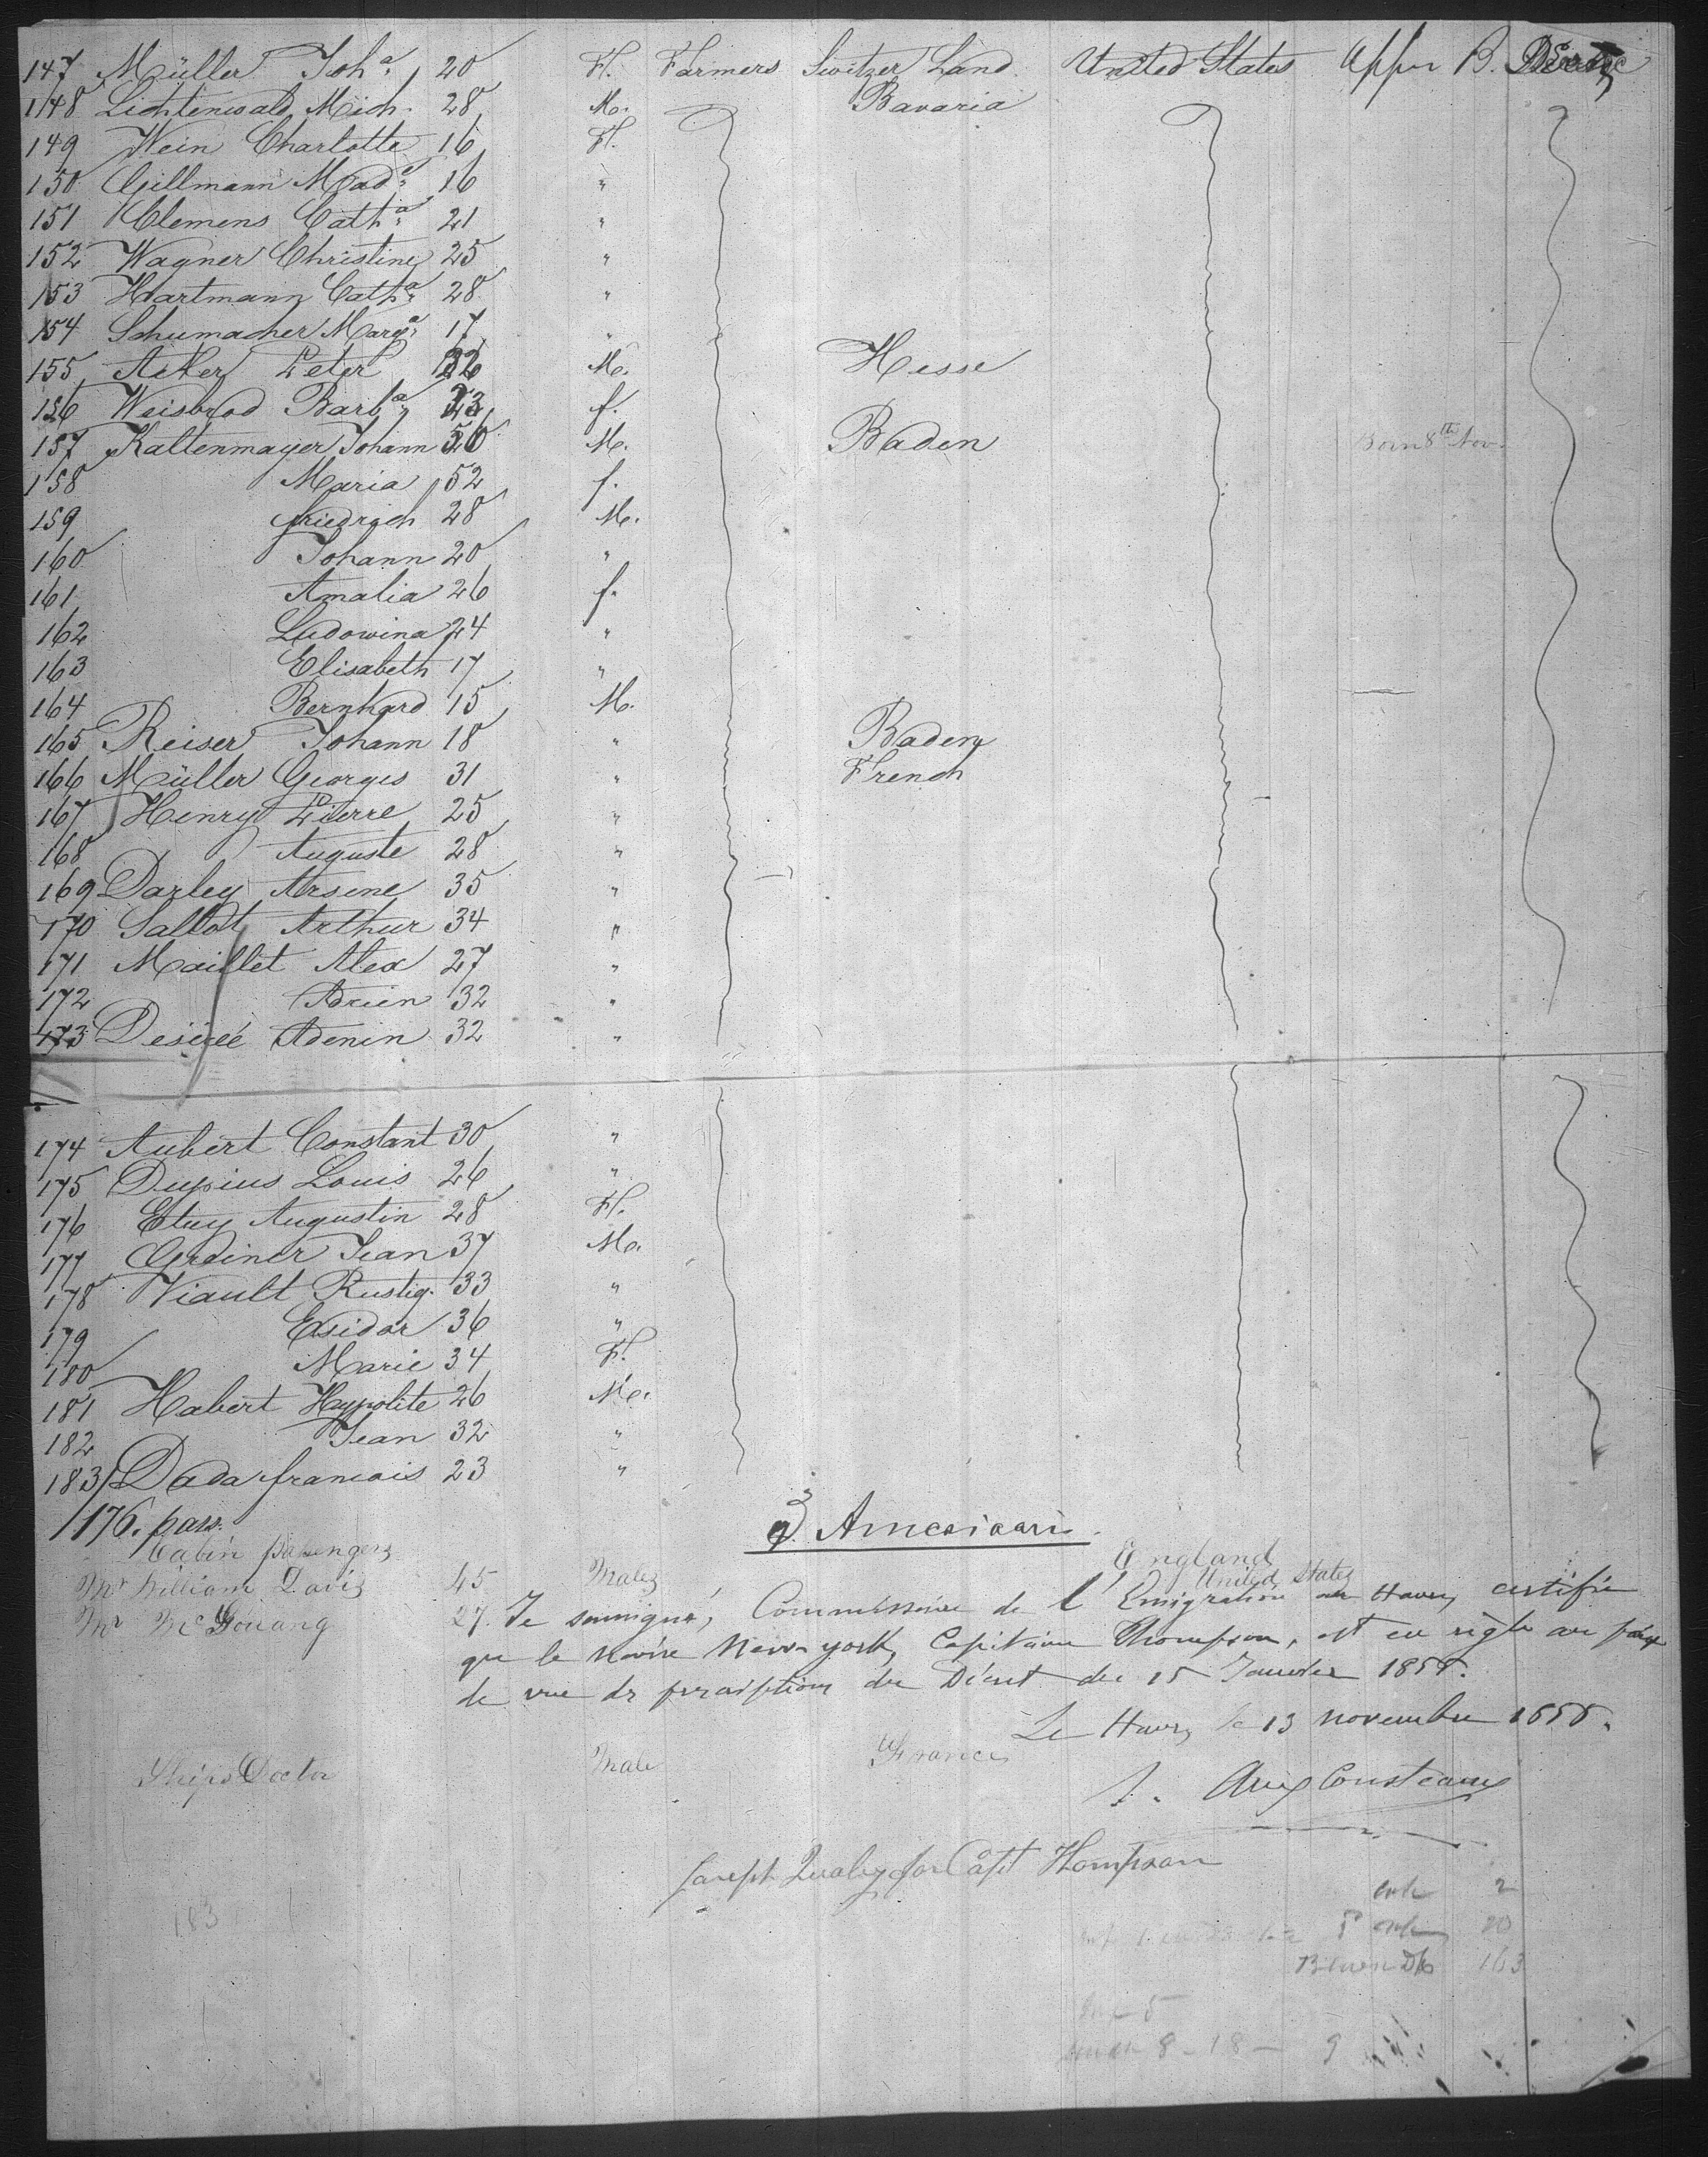 147 Müller Joha 20 F. Farmers Switzer Land United States Upper B.
148 Lichtenwald Mich. 28 M. Bavaria
149 Wein Charlotte 16 F.
150 Gillmann Mad. 16 "
151 Clemens Catha 21 "
152 Wagner Christine 25 "
153 Hartmann Catha 28 "
154 Schumacher Marga 17 "
155 Acker Peter 32 M. Hesse
156 Weisbrod Barba 23 f.
157 Kaltenmayer Johann 50 M. Baden Born 8th Nov.
158 Maria 52 f.
159 friedrich 28 M.
160 Johann 20 "
161 Amalia 26 f.
162 Ludowina 24 "
163 Elisabeth 17 "
164 Bernhard 15 M.
165 Reiser Johann 18 " Baden
166 Müller Georges 31 " French
167 Henry Pierre 25 "
168 Auguste 28 "
169 Darley Arsene 35 "
170 Sallot Arthur 34 "
171 Maillet Alex 27 "
172 Adrien 32 "
173 Desireé Adenin 32 "
174 Aubert Constant 30 "
175 Dupius Louis 26 "
176 Etuy Augustin 28 F.
177 Greiner Jean 37 M.
178 Viault Rustiq. 33 "
179 Exidor 36 "
180 Marie 34 F.
181 Habert Haypolite 26 M.
182 Jean 32 "
183 Dada francois 23 "
176. pass.
Cabin passengers England
Mr William Davis 45 Males United States
Mr 27. Je soussigné, Commissaire de l'Emigration au Havre, certifie
que le navire New-york, Capitaine Thompson, est en règle au point
de vue de prescriptions du Décret du 15 Janvier 1855.
Le Havre, le 13 novembre
Ships Doctor Male France
Joseph for Capt Thompson
2
183 20
163
8 - 18 - 9